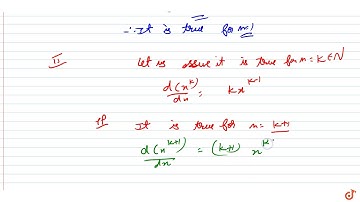 ∴ It is true for n=1
II Let us assue it is true for n=k∈N
d(x^k)/dx = k x^{k-1}
TP It is true for n= k+1
d(x^{k+1})/dx = (k+1) x^k